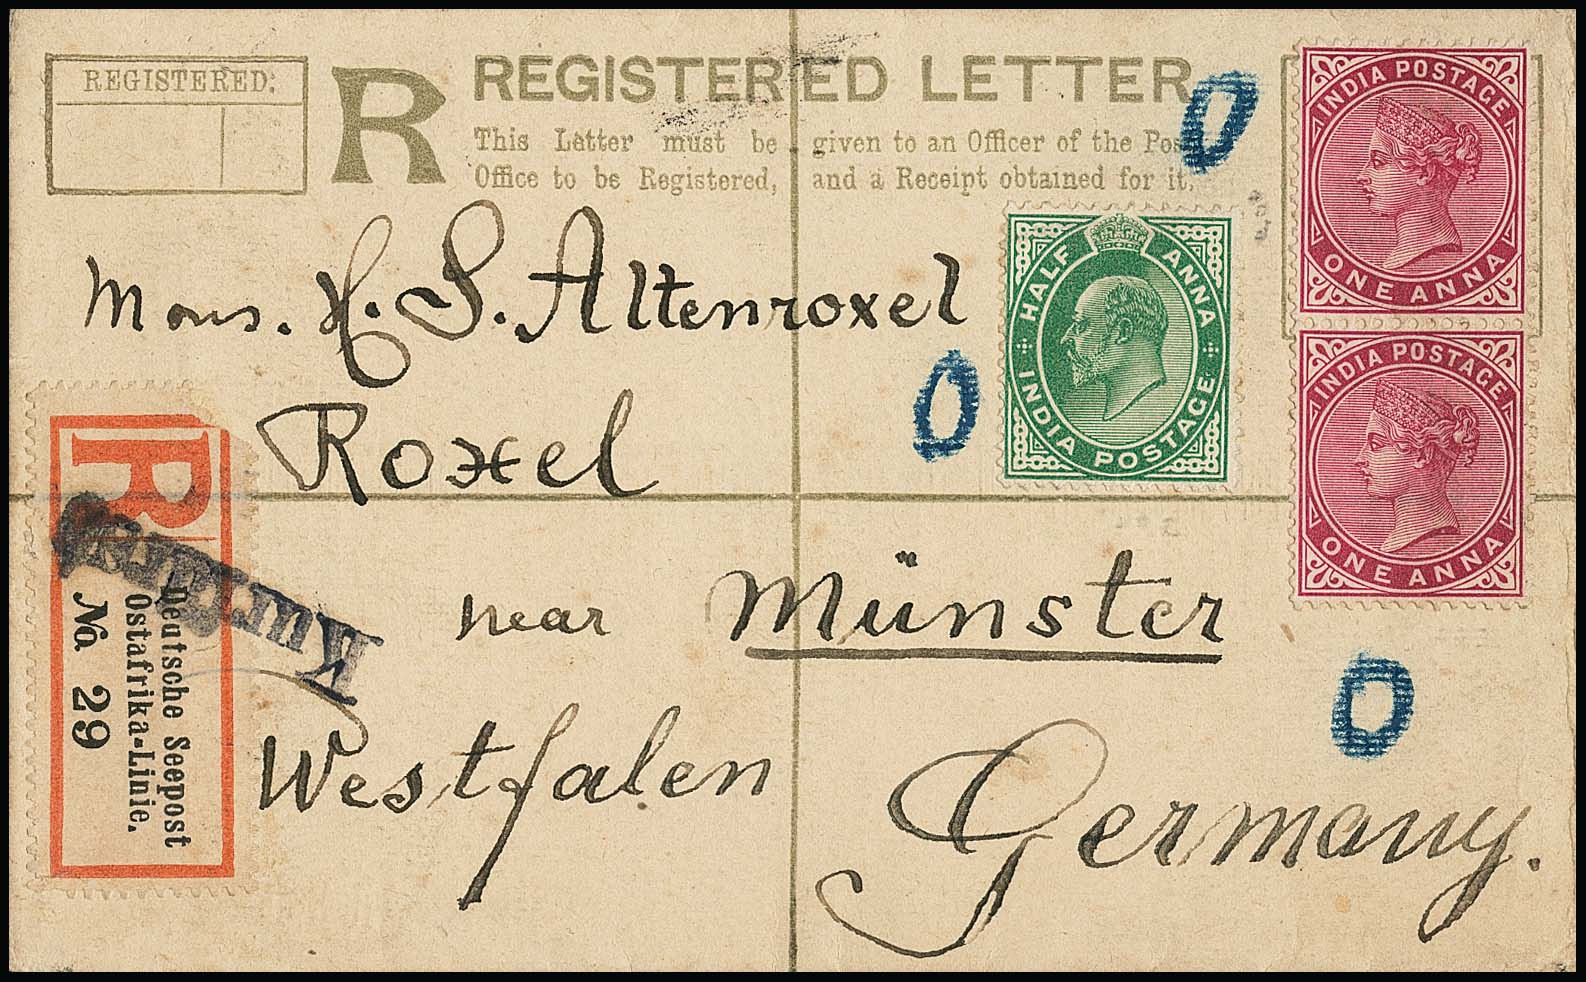 REGISTERED:
R
REGISTERED LETTER.
This Letter must be given to an Officer of the Pos
Office to be Registered, and a Receipt obtained for it.
INDIA POSTAGE
ONE ANNA
INDIA POSTAGE
ONE ANNA
HALF ANNA
INDIA POSTAGE
0
0
0
Mons. H. S. Altenroxel
Roxel
near Münster
Westfalen
Germany.
R
Deutsche Seepost
Ostafrika-Linie.
No 29